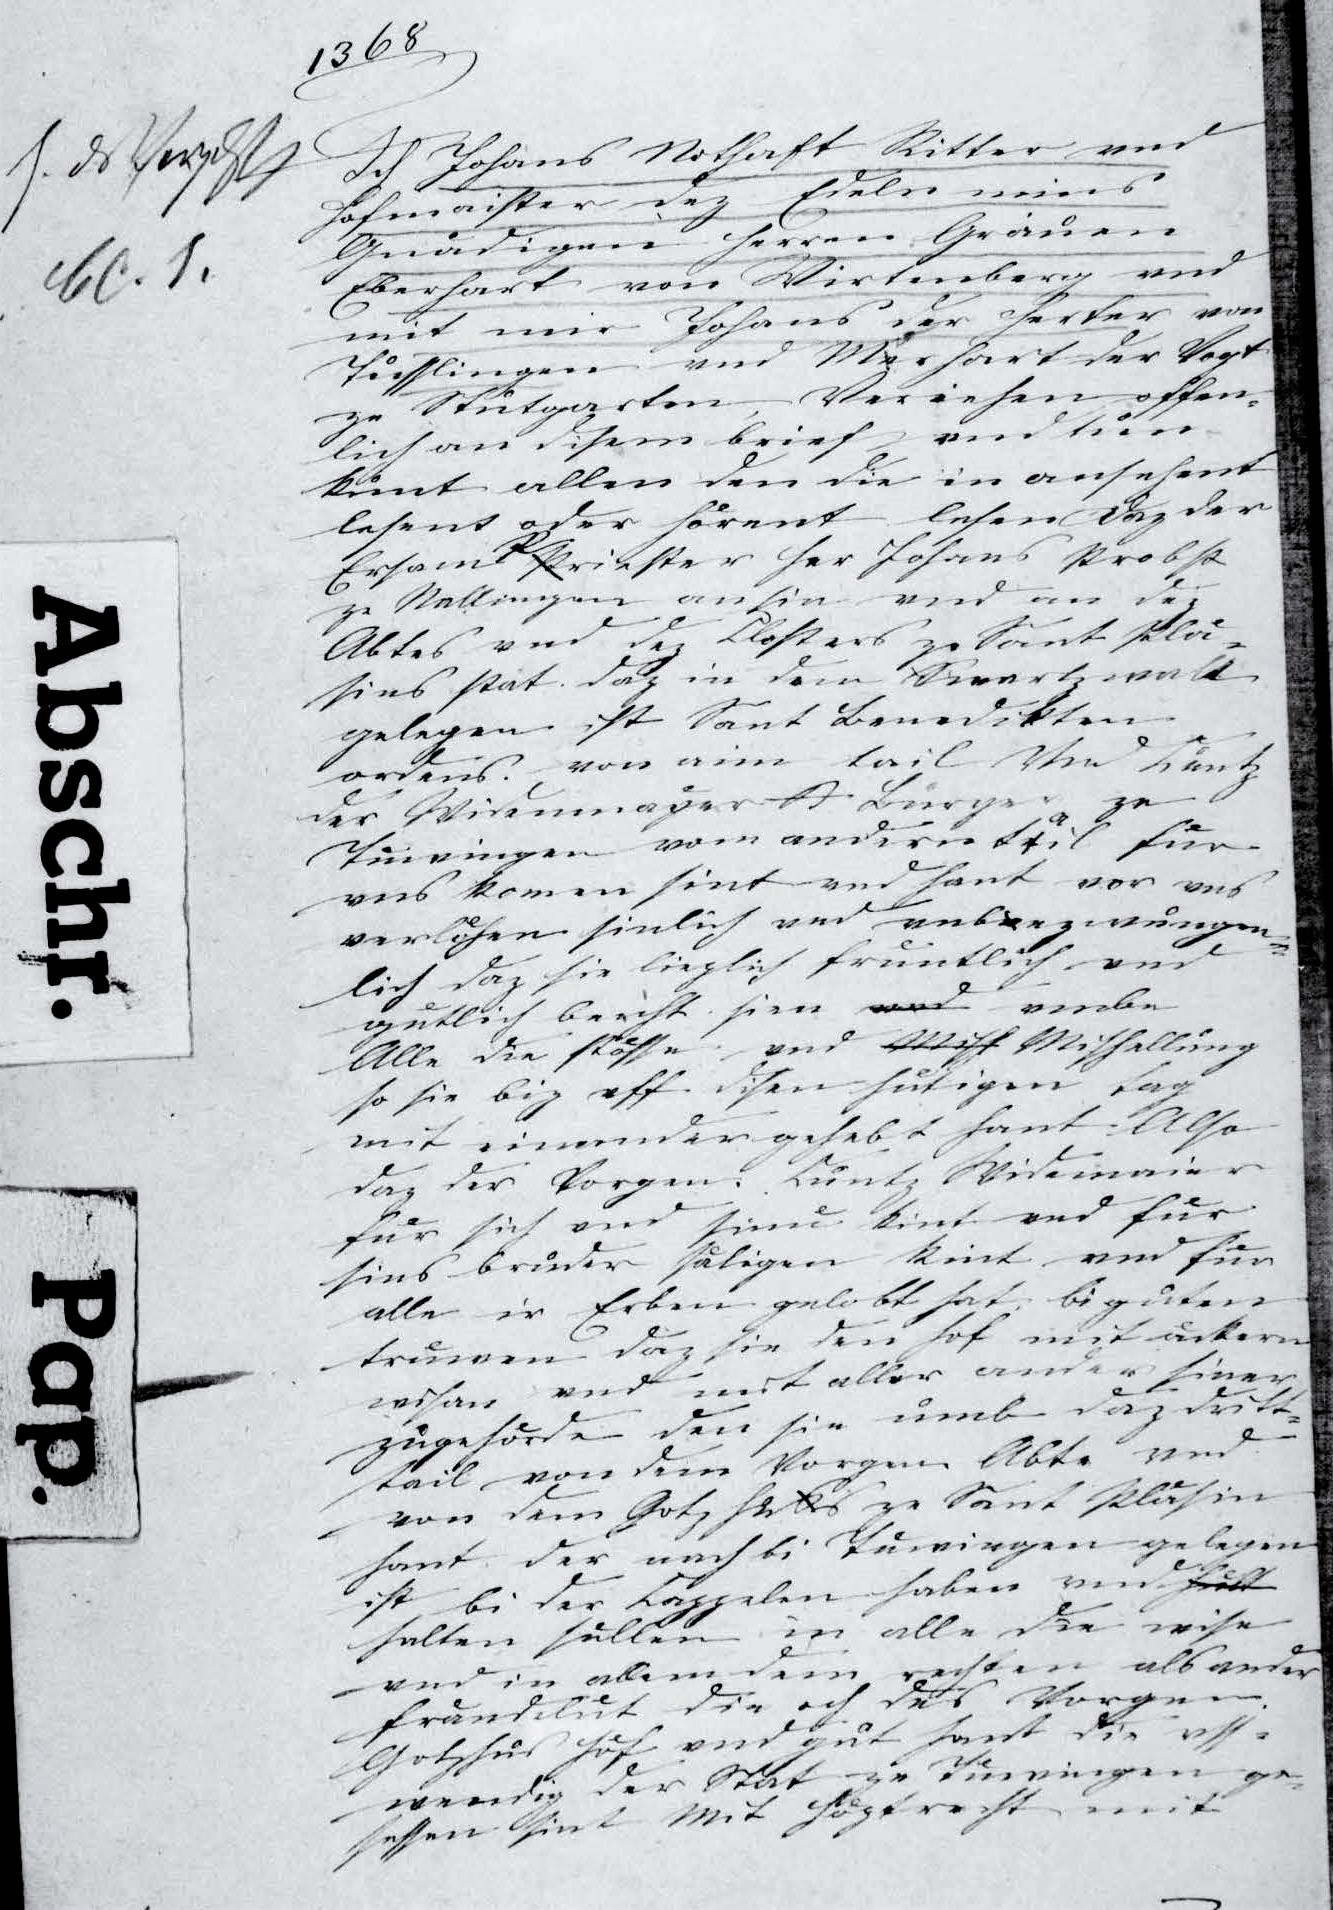 1368
Ich Johans Nothaft Ritter vnd
Hofmaister dez Edeln mins
Gnädigen Herren Grauen
Eberhart von Wirtenberg vnd
mit mir Johans der Herter von
Tusslingen vnd Werhart der Vogt
ze Stutgarten, Veriehen offen-
lich an disem brief vnd tuen
kunt allen den die in ansehent
lesent oder hörent lesen Daz der
Ersam Priester her Johans Probst
ze Nallingen an sin vnd an dez
Abtes vnd dez Closters ze Sant Plä-
sins stat. daz in dem Swartzwalt
gelegen ist Sant Benedikten
ordens. von aim tail Und Cuntz
der Widenmayer Burger ze
Tuwingen vom andern tail fur
vns komen sint vnd hant vor vns
veriehen sinlich vnd vnbezwungen-
lich daz sie lieplich fruntlich vnd
gutlich bericht sien vnd vmbe
Alle die stösse vnd Missh Misshellung
so sie biz vff disen hutigen tag
mit einander gehebt hant. Also
daz der Vorgen. Cuntz Widemaier
fur sich vnd sinu kint vnd fur
sins bruder säligen kint vnd fur
alle ir Erben gelobt hat. bi guten
truwen daz sie den hof mit äckern
wisan vnd mit aller ander siner
zugehörde den sie umb daz dritt-
tail von dem Vorgen. Abte vnd
von dem Gotzhus ze Sant Pläsin
hant. der nach bi Tuwingen gelegen
ist bi der Cappelen haben vnd
halten sullen in alle die wise
vnd in allem dem rechten als ander
fraundlut die och des Vorgen.
Gotzhus höf vnd gut hant die vss-
wendig der Stat ze Tuwingen ge-
sessen sint Mit höptrecht mit
Abschr.
Pap.